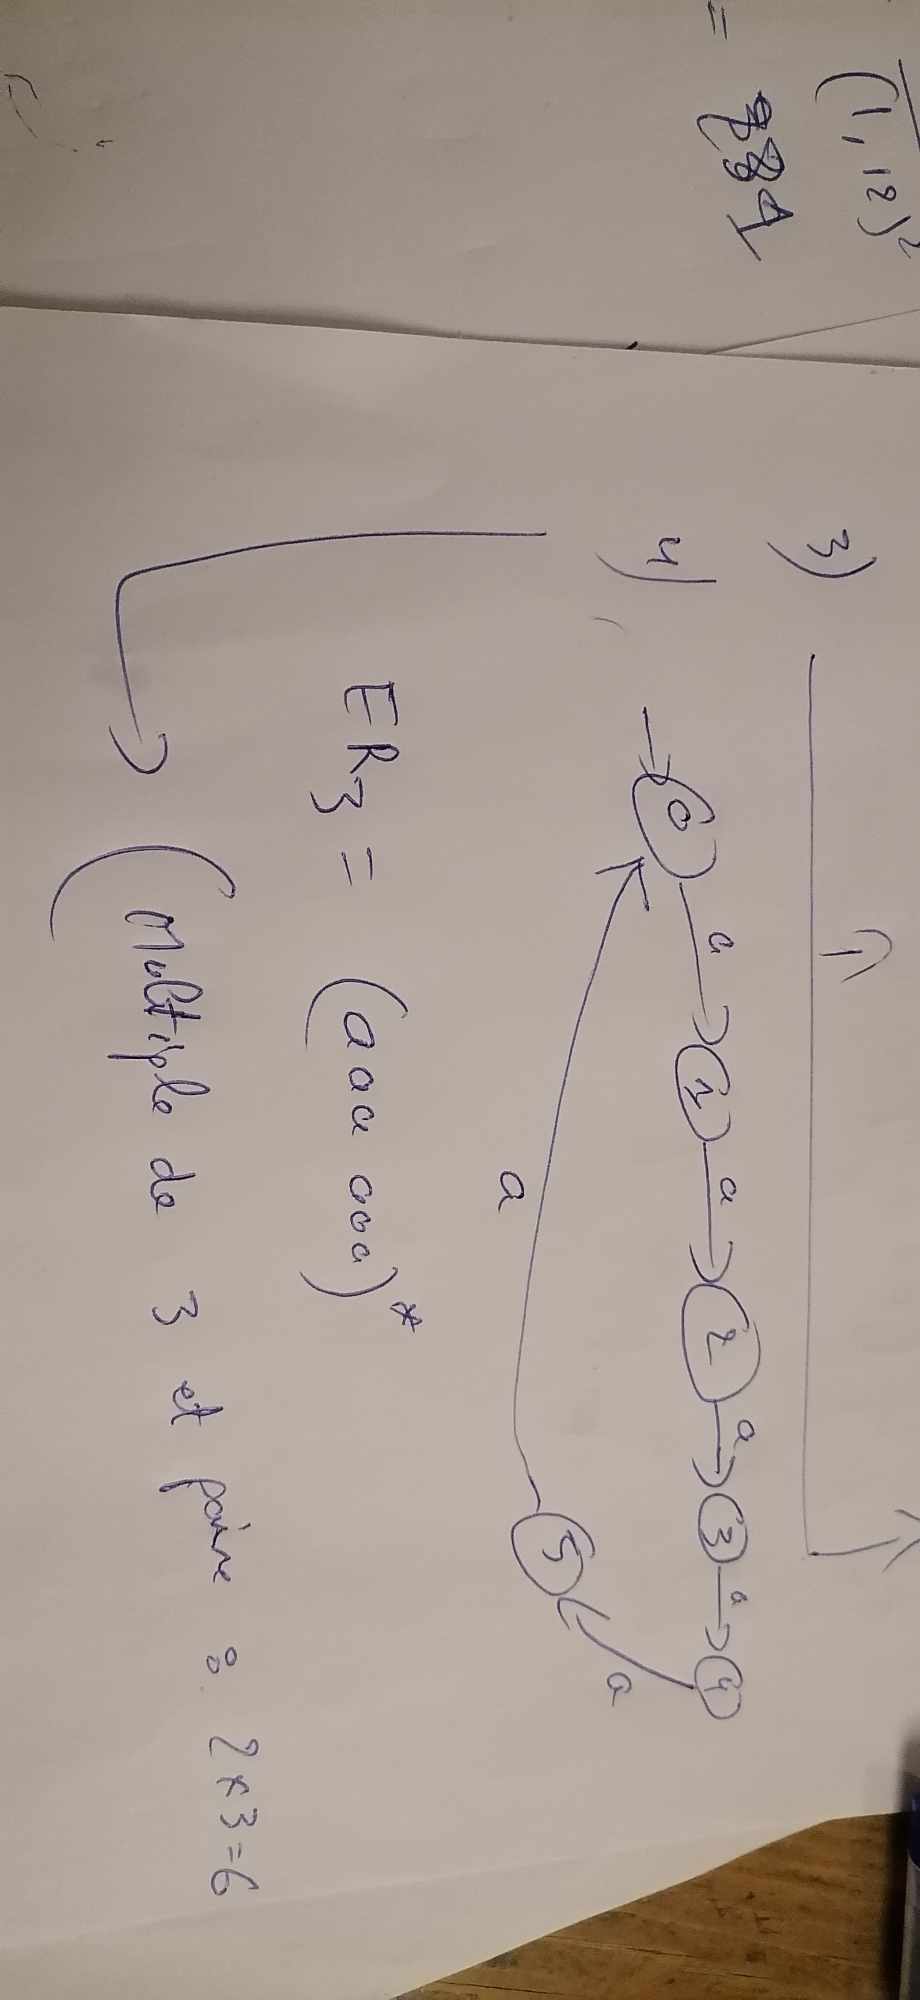 (1,12)²
=
3)
4)
0 a 1 a 2 a 3 a 4
a 5 a
ER3 = (aaa aaa)*
(Multiple de 3 et paire : 2×3=6